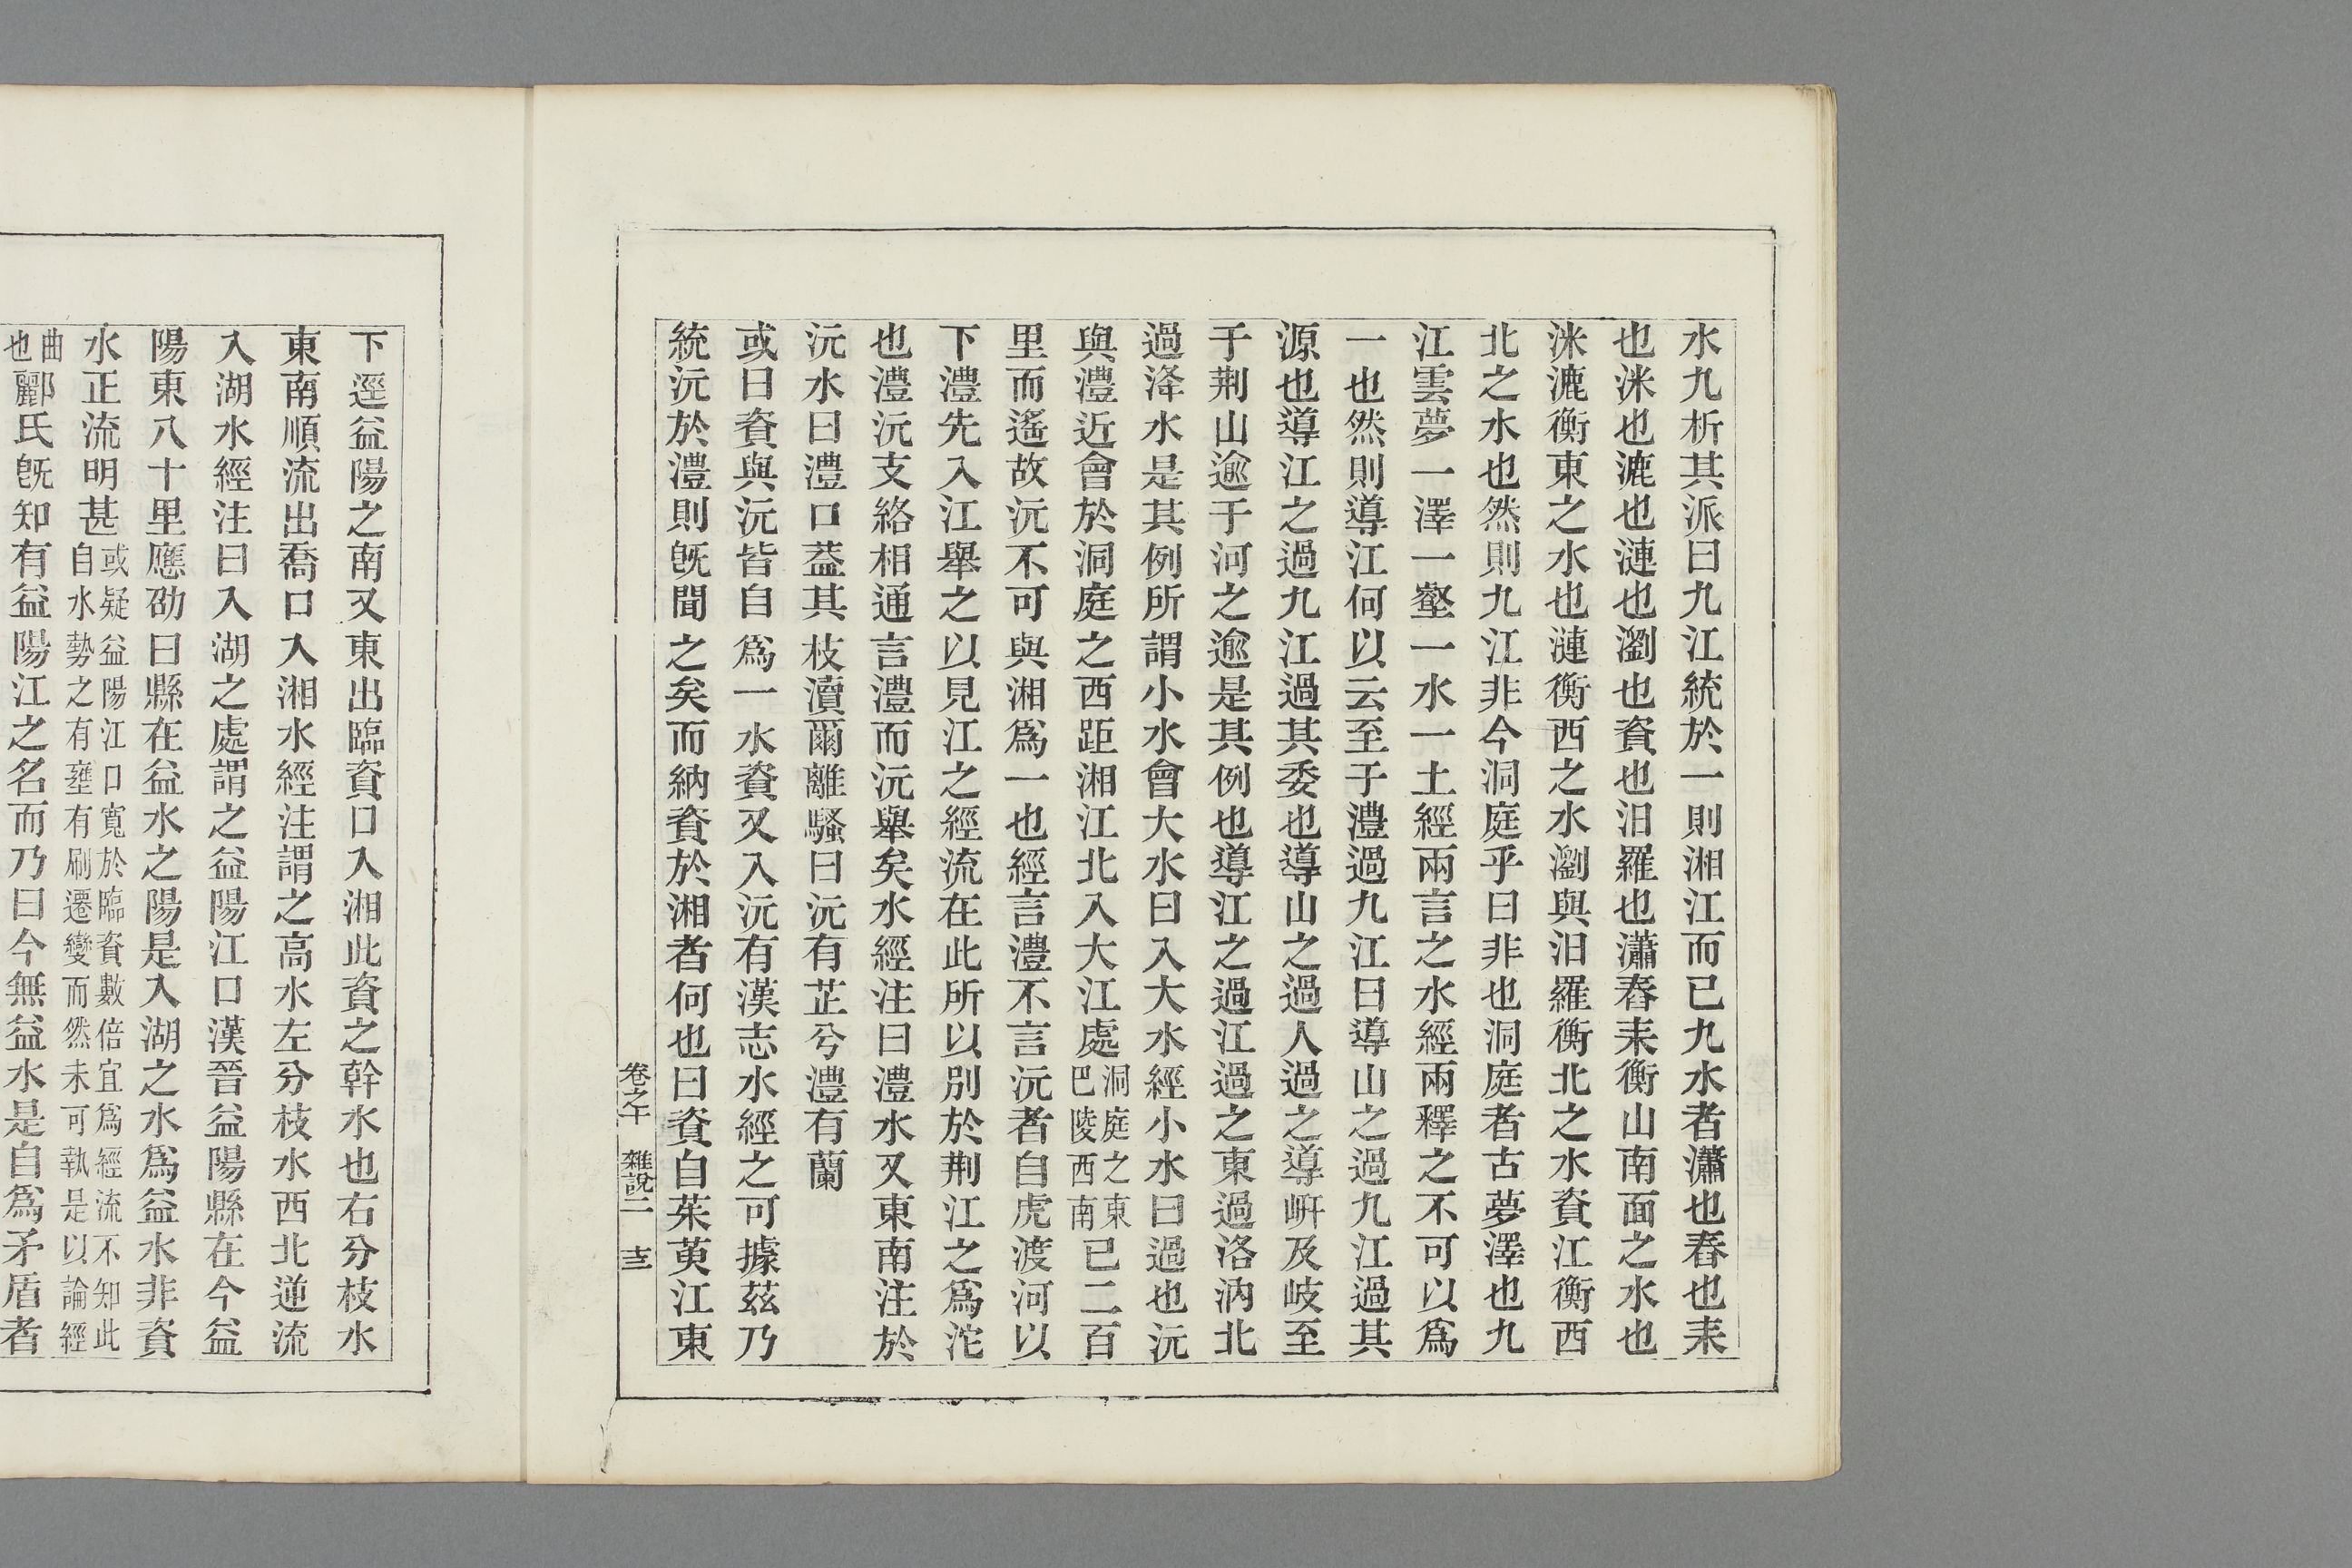 水九析其派曰九江統於一則湘江而已九水者瀟也舂也耒
也洣也漉也漣也瀏也資也汨羅也瀟舂耒衡山南面之水也
洣漉衡東之水也漣衡西之水瀏與汨羅衡北之水資江衡西
北之水也然則九江非今洞庭乎曰非也洞庭者古夢澤也九
江雲夢一澤一壑一水一土經兩言之水經兩釋之不可以爲
一也然則導江何以云至于澧過九江曰導山之過九江過其
源也導江之過九江過其委也導山之過人過之導岍及岐至
于荆山逾于河之逾是其例也導江之過江過之東過洛汭北
過洚水是其例所謂小水會大水曰入大水經小水曰過也沅
與澧近會於洞庭之西距湘江北入大江處洞庭之東巴陵西南已二百
里而遙故沅不可與湘爲一也經言澧不言沅者自虎渡河以
下澧先入江舉之以見江之經流在此所以別於荆江之爲沱
也澧沅支絡相通言澧而沅舉矣水經注曰澧水又東南注於
沅水曰澧口葢其枝瀆爾離騷曰沅有芷兮澧有蘭
或曰資與沅皆自爲一水資又入沅有漢志水經之可據茲乃
統沅於澧則旣聞之矣而納資於湘者何也曰資自茱萸江東
卷之午 雜說二 十三
下逕益陽之南又東出臨資口入湘此資之幹水也右分枝水
東南順流出喬口入湘水經注謂之高水左分枝水西北逆流
入湖水經注曰入湖之處謂之益陽江口漢晉益陽縣在今益
陽東八十里應劭曰縣在益水之陽是入湖之水爲益水非資
水正流明甚或疑益陽江口寬於臨資數倍宜爲經流不知此自水勢之有壅有刷遷變而然未可執是以論經
曲也酈氏旣知有益陽江之名而乃曰今無益水是自爲矛盾者